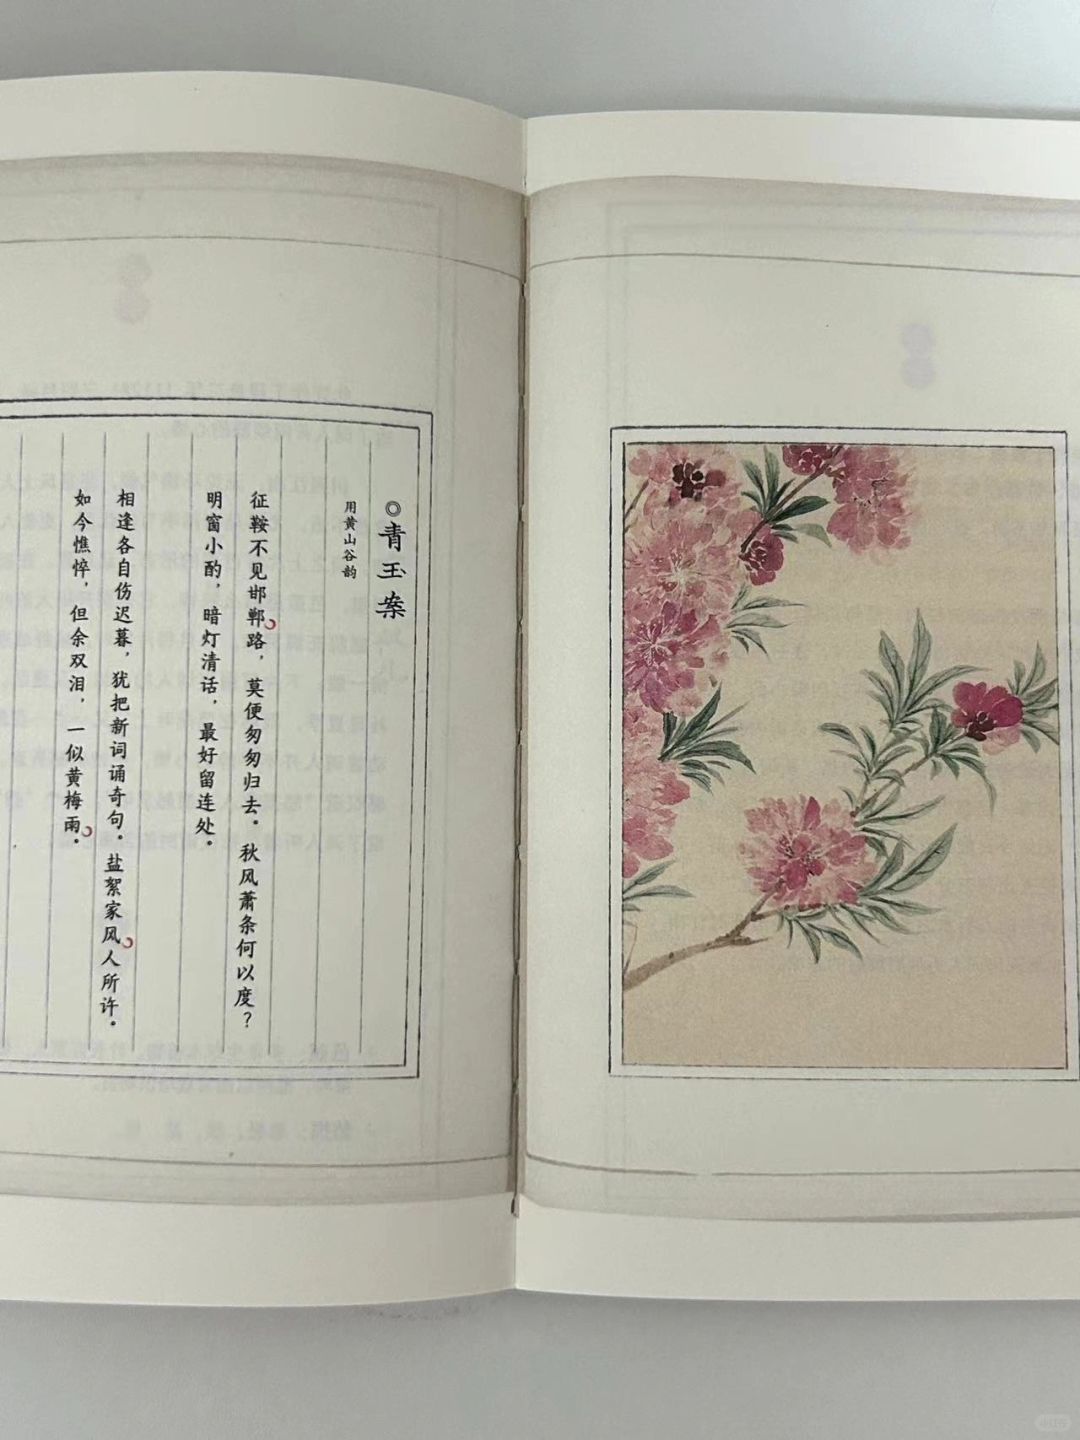 ◎青玉案
用黄山谷韵
征鞍不见邯郸路，莫便匆匆归去。秋风萧条何以度？
明窗小酌，暗灯清话，最好留连处。
相逢各自伤迟暮，犹把新词诵奇句。盐絮家风人所许。
如今憔悴，但余双泪，一似黄梅雨。